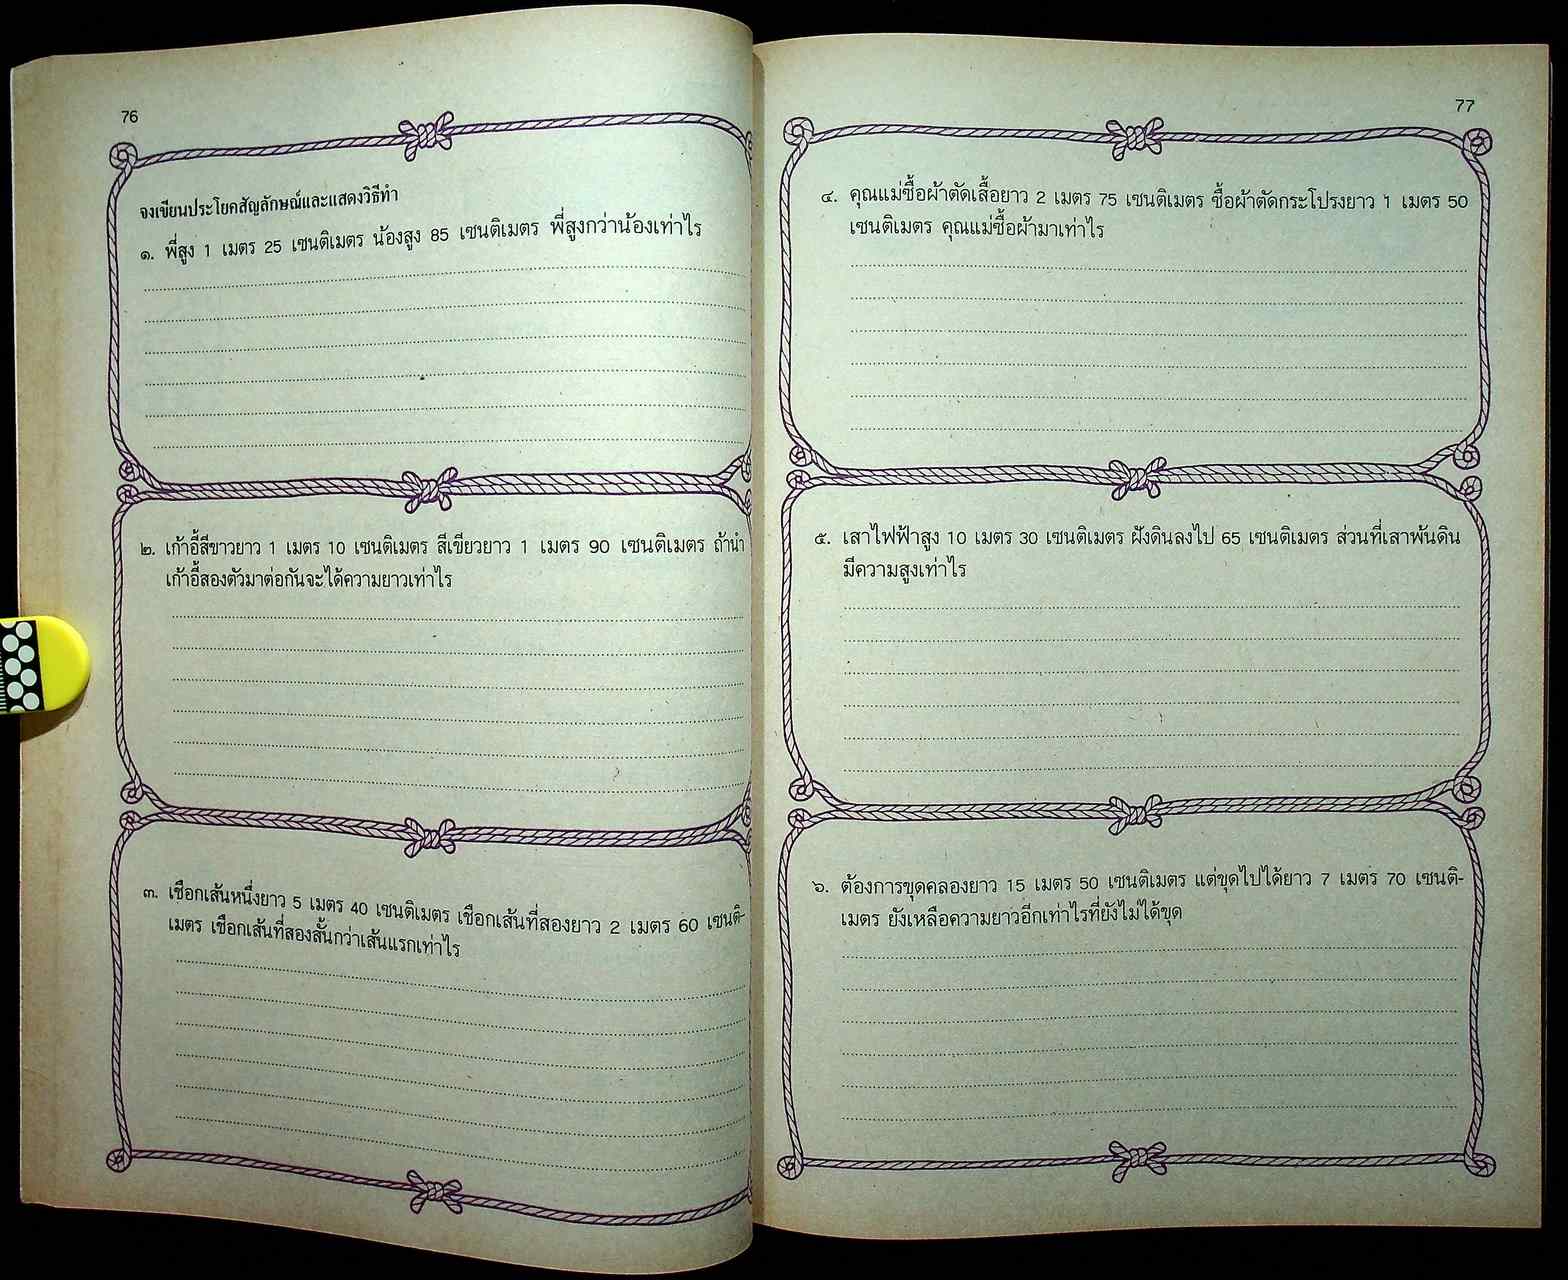 76
จงเขียนประโยคสัญลักษณ์และแสดงวิธีทำ
๑. พี่สูง 1 เมตร 25 เซนติเมตร น้องสูง 85 เซนติเมตร พี่สูงกว่าน้องเท่าไร
๒. เก้าอี้สีขาวยาว 1 เมตร 10 เซนติเมตร สีเขียวยาว 1 เมตร 90 เซนติเมตร ถ้านำ
เก้าอี้สองตัวมาต่อกันจะได้ความยาวเท่าไร
๓. เชือกเส้นหนึ่งยาว 5 เมตร 40 เซนติเมตร เชือกเส้นที่สองยาว 2 เมตร 60 เซนติ-
เมตร เชือกเส้นที่สองสั้นกว่าเส้นแรกเท่าไร
77
๔. คุณแม่ซื้อผ้าตัดเสื้อยาว 2 เมตร 75 เซนติเมตร ซื้อผ้าตัดกระโปรงยาว 1 เมตร 50
เซนติเมตร คุณแม่ซื้อผ้ามาเท่าไร
๕. เสาไฟฟ้าสูง 10 เมตร 30 เซนติเมตร ฝังดินลงไป 65 เซนติเมตร ส่วนที่เสาพ้นดิน
มีความสูงเท่าไร
๖. ต้องการขุดคลองยาว 15 เมตร 50 เซนติเมตร แต่ขุดไปได้ยาว 7 เมตร 70 เซนติ-
เมตร ยังเหลือความยาวอีกเท่าไรที่ยังไม่ได้ขุด